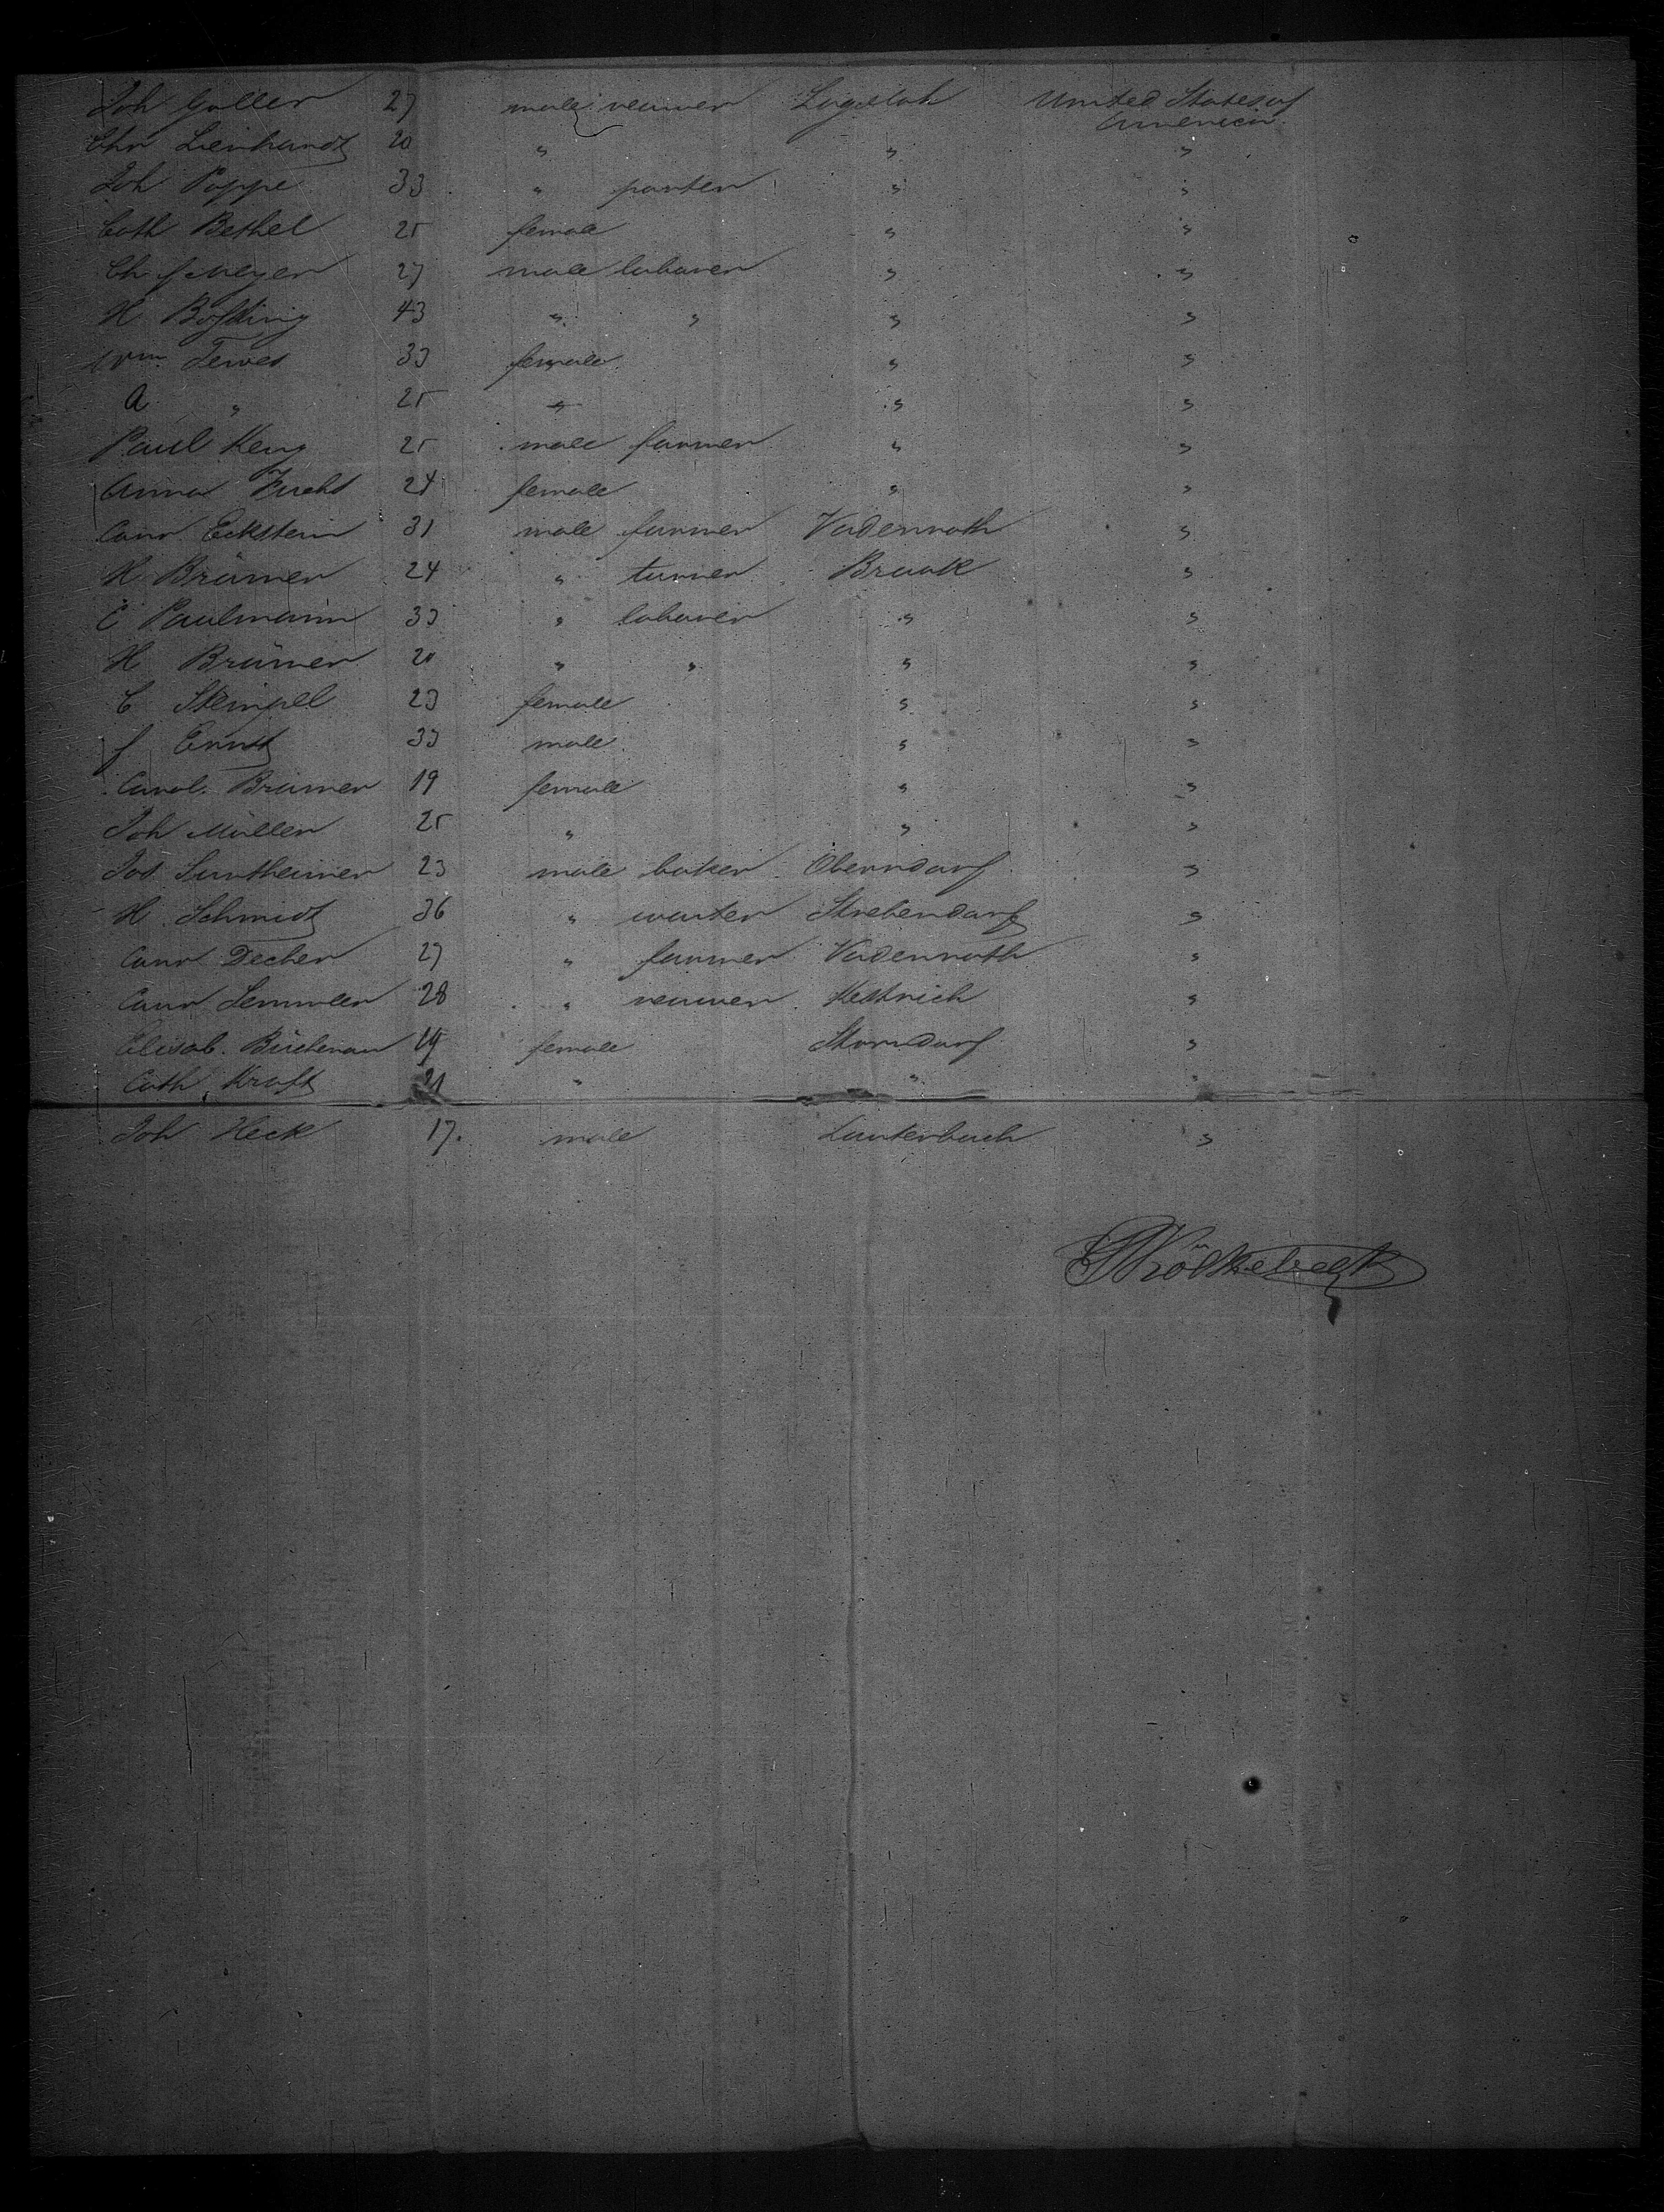 Joh Goller 27 male weawer Lügeloh United States of
America
Chr Lienhardt 20 " " "
Joh Poppe 33 " porter " "
Cath Bethel 25 female " "
Ch f Meyer 27 male labaurer " "
H 43 " " " "
Wm. Tewes 33 female " "
A " 25 " " "
Paul 25 male farmer " "
Anna Fuchs 24 female " "
Conr Eckstein 31 male farmer Vadenroth "
H Brümer 24 " turner Braak "
C Paulmann 33 " labaurer " "
H Brümer 20 " " " "
C Stempel 23 female " "
f Ernst 33 male " "
Carol. Brümer 19 female " "
Joh Müller 25 " " "
Jos. Suntheimer 23 male baker Oberndorf "
H. Schmidt 36 " Strebendorf "
Conr Decher 27 " farmer Vadenroth "
Conr Semmler 28 " weawer Kestrich "
Elisab. 19 female Storndorf "
Cath Kraft 21 " " "
Joh Heck 17. male Lauterbach "